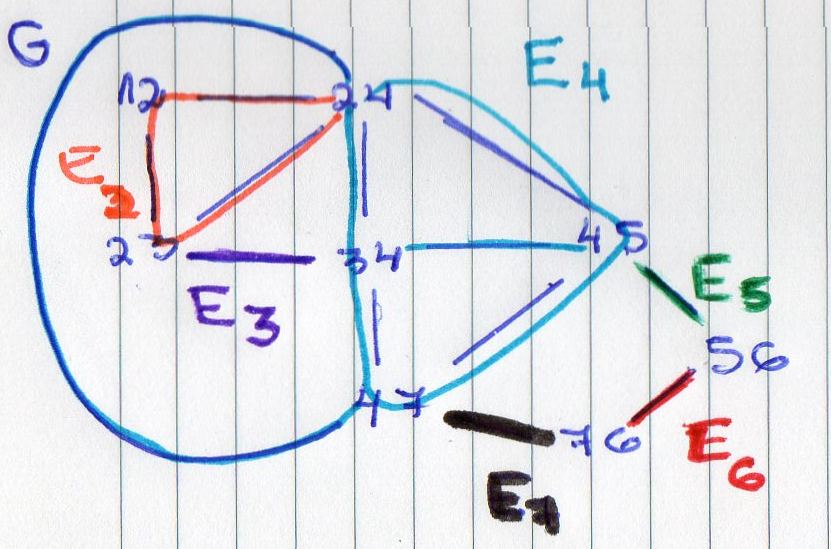 G
E4
12 24
E2
23 34 45
E3
E5
56
47 76
E6
E7